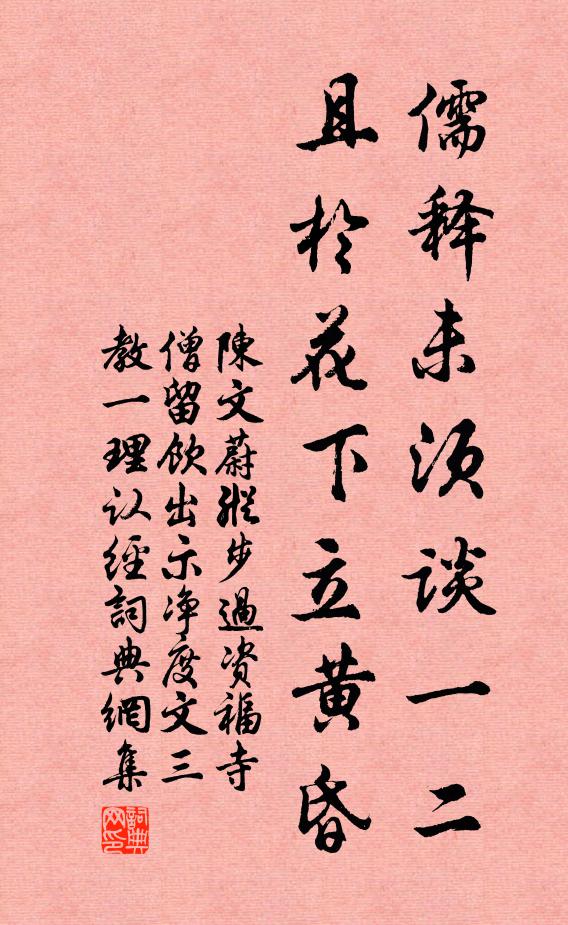 儒释未须谈一二
且於花下立黄昏
陳文蔚縱步過资福寺
僧留飲出示净度文三
教一理认經詞典網集
詞典网印